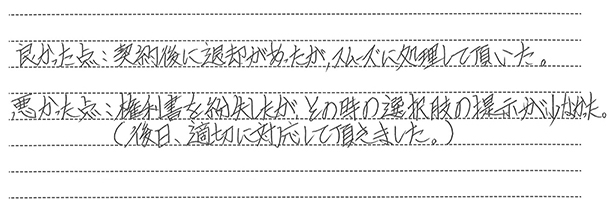 良かった点：契約後に退却があったが、スムーズに処理して頂いた。
悪かった点：権利書を紛失したが その時の選択肢の提示が少なかった。
（後日、適切に対応して頂きました。）